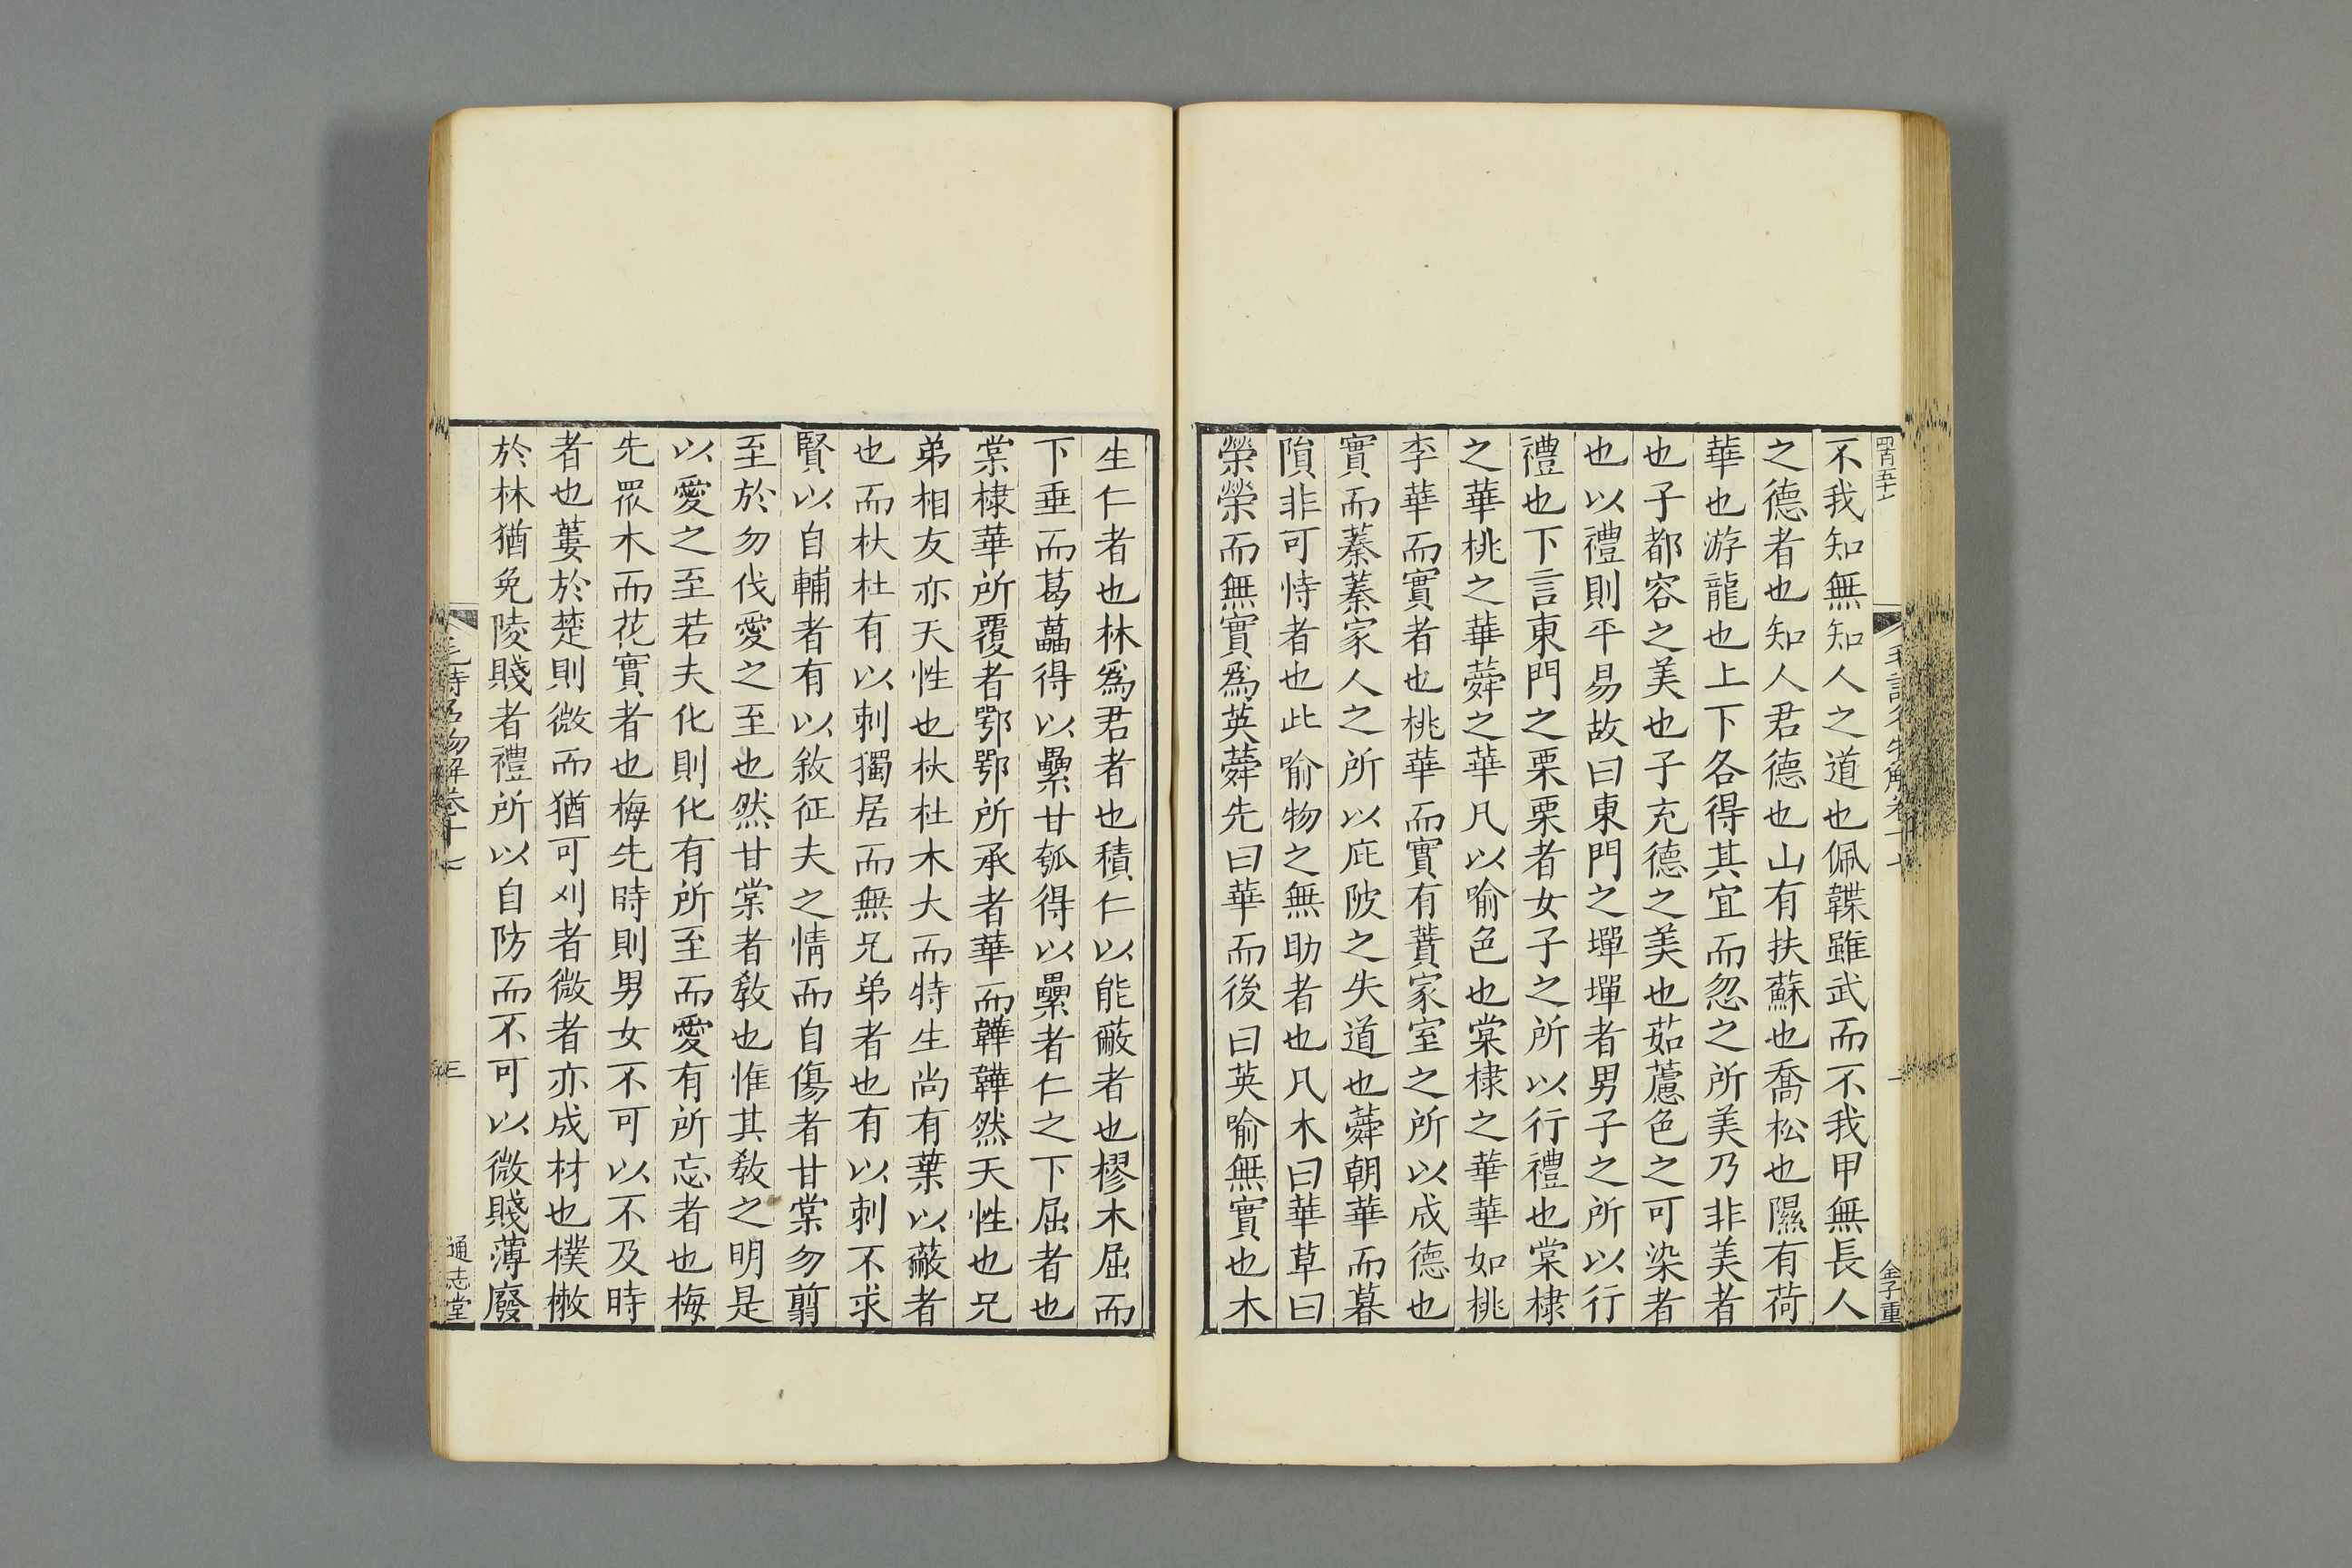 不我知無知人之道也佩韘雖武而不我甲無長人
之德者也知人君德也山有扶蘇也喬松也隰有荷
華也游龍也上下各得其宜而忽之所美乃非美者
也子都容之美也子充德之美也茹藘色之可染者
也以禮則平易故曰東門之墠墠者男子之所以行
禮也下言東門之栗栗者女子之所以行禮也棠棣
之華桃之華蕣之華凡以喻色也棠棣之華華如桃
李華而實者也桃華而實有蕡家室之所以成德也
實而蓁蓁家人之所以庇陂之失道也蕣朝華而暮
隕非可恃者也此喻物之無助者也凡木曰華草曰
榮榮而無實爲英蕣先曰華而後曰英喻無實也木
生仁者也林爲君者也積仁以能蔽者也樛木屈而
下垂而葛藟得以纍甘瓠得以纍者仁之下屈者也
棠棣華所覆者鄂鄂所承者華而韡韡然天性也兄
弟相友亦天性也杕杜木大而特生尚有葉以蔽者
也而杕杜有以刺獨居而無兄弟者也有以刺不求
賢以自輔者有以敘征夫之情而自傷者甘棠勿翦
至於勿伐愛之至也然甘棠者教也惟其教之明是
以愛之至若夫化則化有所至而愛有所忘者也梅
先眾木而花實者也梅先時則男女不可以不及時
者也蔞於楚則微而猶可刈者微者亦成材也樸樕
於林猶免陵賤者禮所以自防而不可以微賤薄廢
毛詩名物解卷十七
三
通志堂